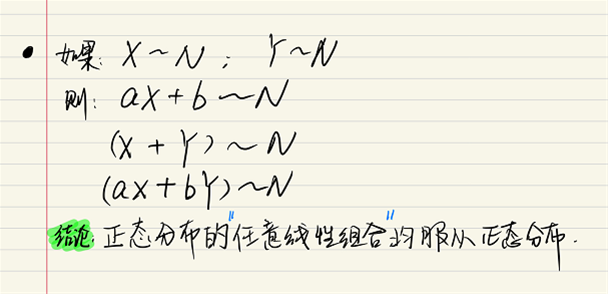 • 如果: X~N ; Y~N
则: aX+b~N
(X+Y)~N
(aX+bY)~N
结论: 正态分布的"任意线性组合"均服从正态分布.